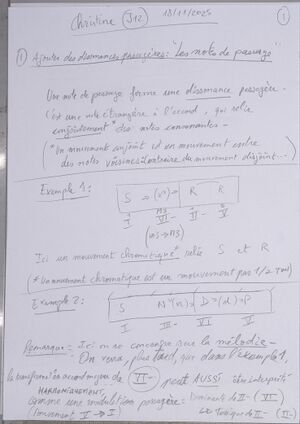 Christine J12 18/11/2025 1
1 Ajouter des dissonances passagères: "Les notes de passage"
Une note de passage forme une dissonance passagère.
C'est une note étrangère à l'accord, qui relie
conjointement* des notes consonantes.
(*Un mouvement conjoint est un mouvement entre
des notes voisines contraire du mouvement disjoint...)
Exemple 1:
S R R
I VI- II- V
Ici un mouvement chromatique* relie S et R
(*Un mouvement chromatique est un mouvement par 1/2 Ton)
Exemple 2:
S
I III- VI V
Remarque: Ici on se concentre sur la mélodie.
On verra, plus tard, que dans l'exemple 1,
de VI- peut AUSSI être interprété
HARMONIQUEMENT
comme une modulation passagère: Dominante de II- (VI)
(mouvement V → I) II- (II)